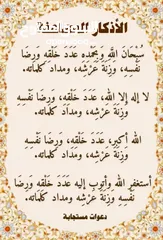 الأذكار
سُبْحَانَ اللَّهِ وَبِحَمْدِهِ عَدَدَ خَلْقِهِ وَرِضَا
نَفْسِهِ، وَزِنَةَ عَرْشِهِ، وَمِدَادَ كَلِمَاتِهِ.
لا إله إلا الله، عَدَدَ خَلْقِهِ، وَرِضَا نَفْسِهِ
وَزِنَةَ عَرْشِهِ، وَمِدَادَ كَلِمَاتِهِ.
الله أكبر، عَدَدَ خَلْقِهِ، وَرِضَا نَفْسِهِ
وَزِنَةَ عَرْشِهِ، وَمِدَادَ كَلِمَاتِهِ.
أستغفر الله وأتوب إليه عَدَدَ خَلْقِهِ وَرِضَا
نَفْسِهِ وَزِنَةَ عَرْشِهِ، وَمِدَادَ كَلِمَاتِهِ.
دعوات مستجابة